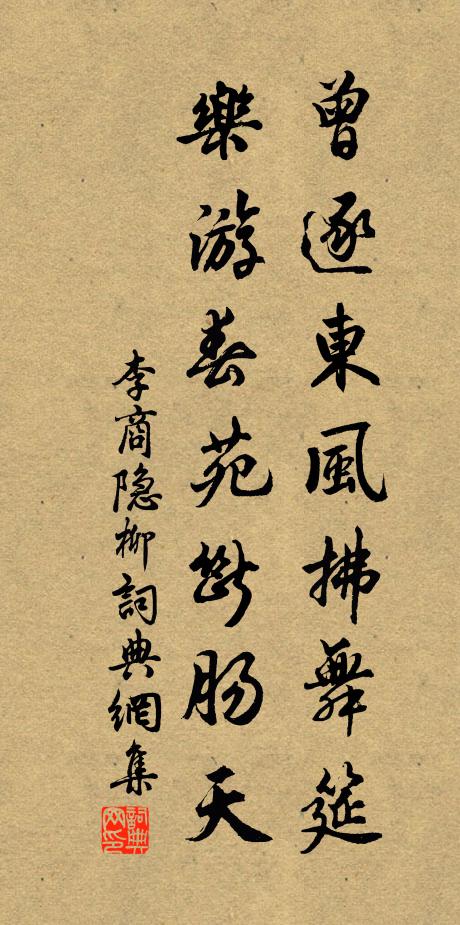 曾逐東風拂舞筵
樂游春苑斷腸天
李商隐柳詞典網集
詞典网印